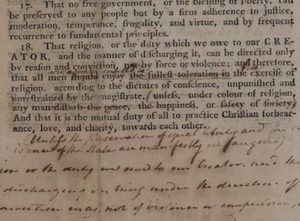 17. That no free government, or the blessing of liberty, can
be preferved to any people but by a firm adherence to juftice,
moderation, temperance, frugality, and virtue, and by frequent
recurrence to fundamental principles.
18. That religion, or the duty which we owe to our CRE-
ATOR, and the manner of difcharging it, can be directed only
by reafon and conviction, not by force or violence; and therefore,
that all men fhould enjoy the fulleft toleration in the exercife of
religion, according to the dictates of confcience, unpunifhed and
unreftrained by the magiftrate, unlefs, under colour of religion,
any man difturb the peace, the happinefs, or fafety of fociety.
And that it is the mutual duty of all to practice Chriftian forbear-
ance, love, and charity, towards each other.
Unless the of equal liberty and
of the State are manifestly endangered
or the duty we owe to our Creator, and the
discharging it, being under the direction of
conviction only, not of violence or compulsion,